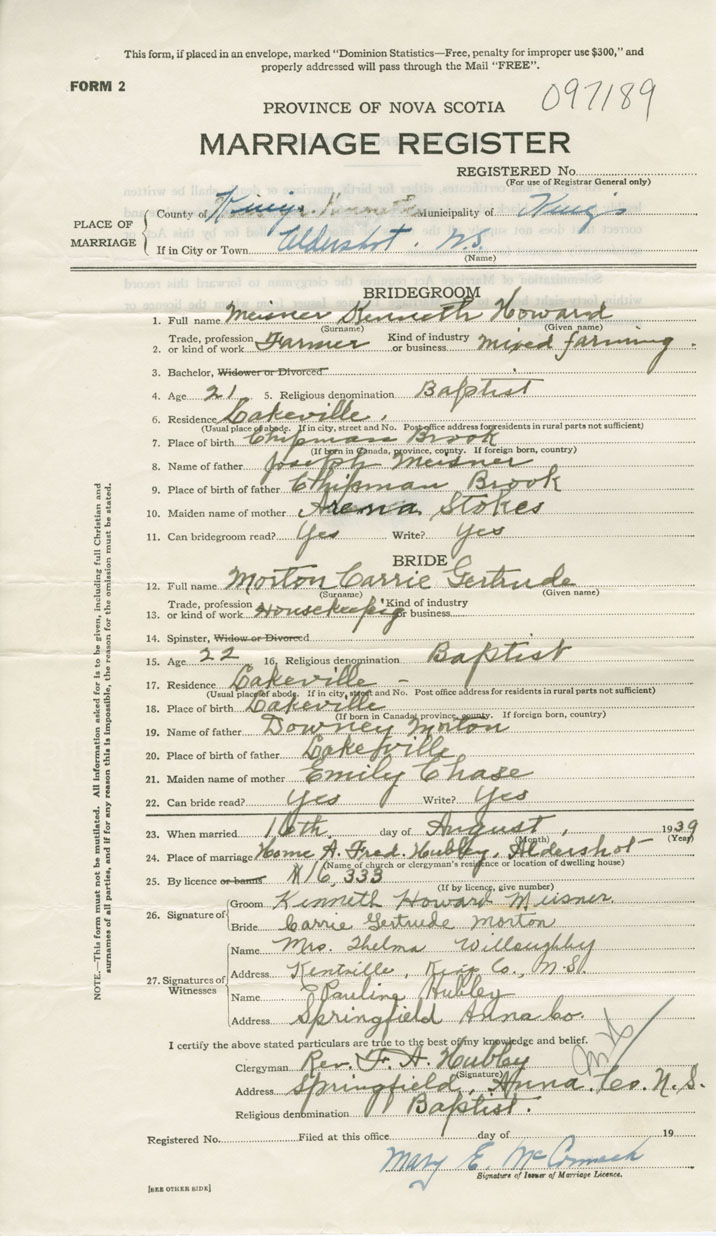 This form, if placed in an envelope, marked "Dominion Statistics—Free, penalty for improper use $300," and
properly addressed will pass through the Mail "FREE".
FORM 2
097189
PROVINCE OF NOVA SCOTIA
MARRIAGE REGISTER
REGISTERED No.
(For use of Registrar General only)
PLACE OF MARRIAGE
County of Kings Municipality of Kings
If in City or Town Aldershot. N.S.
(Name)
BRIDEGROOM
1. Full name Meisner Kenneth Howard
(Surname) (Given name)
2. Trade, profession or kind of work Farmer Kind of industry or business mixed farming.
3. Bachelor, Widower or Divorced
4. Age 21 5. Religious denomination Baptist
6. Residence Lakeville.
(Usual place of abode. If in city, street and No. Post office address for residents in rural parts not sufficient)
7. Place of birth Chipman Brook
(If born in Canada, province, county. If foreign born, country)
8. Name of father Joseph Meisner
9. Place of birth of father Chipman Brook
10. Maiden name of mother Arema Stokes
11. Can bridegroom read? Yes Write? Yes
BRIDE
12. Full name Morton Carrie Gertrude
(Surname) (Given name)
13. Trade, profession or kind of work Housekeepig Kind of industry or business
14. Spinster, Widow or Divorced
15. Age 22 16. Religious denomination Baptist
17. Residence Lakeville -
(Usual place of abode. If in city, street and No. Post office address for residents in rural parts not sufficient)
18. Place of birth Lakeville
(If born in Canada, province, county. If foreign born, country)
19. Name of father Downey Morton
20. Place of birth of father Lakeville
21. Maiden name of mother Emily Chase
22. Can bride read? Yes Write? Yes
23. When married 16th day of August, 1939
(Month) (Year)
24. Place of marriage Home A. Fred. Hubley, Aldershot
(Name of church or clergyman's residence or location of dwelling house)
25. By licence or banns 16,333
(If by licence, give number)
26. Signature of
Groom Kenneth Howard Meisner.
Bride Carrie Gertrude Morton
27. Signatures of Witnesses
Name Mrs. Thelma Willoughby
Address Kentville, Kings Co., N.S.
Name Pauline Hubley
Address Springfield Anna Co.
I certify the above stated particulars are true to the best of my knowledge and belief.
Clergyman Rev. F. A. Hubley
(Signature)
Address Springfield, Anna. Co. N.S.
Religious denomination Baptist.
Registered No. Filed at this office day of 19
Mary E. McCormack
Signature of Issuer of Marriage Licence.
[SEE OTHER SIDE]
NOTE.—This form must not be mutilated. All information asked for is to be given, including full Christian and
surnames of all parties, and if for any reason this is impossible, the reason for the omission must be stated.